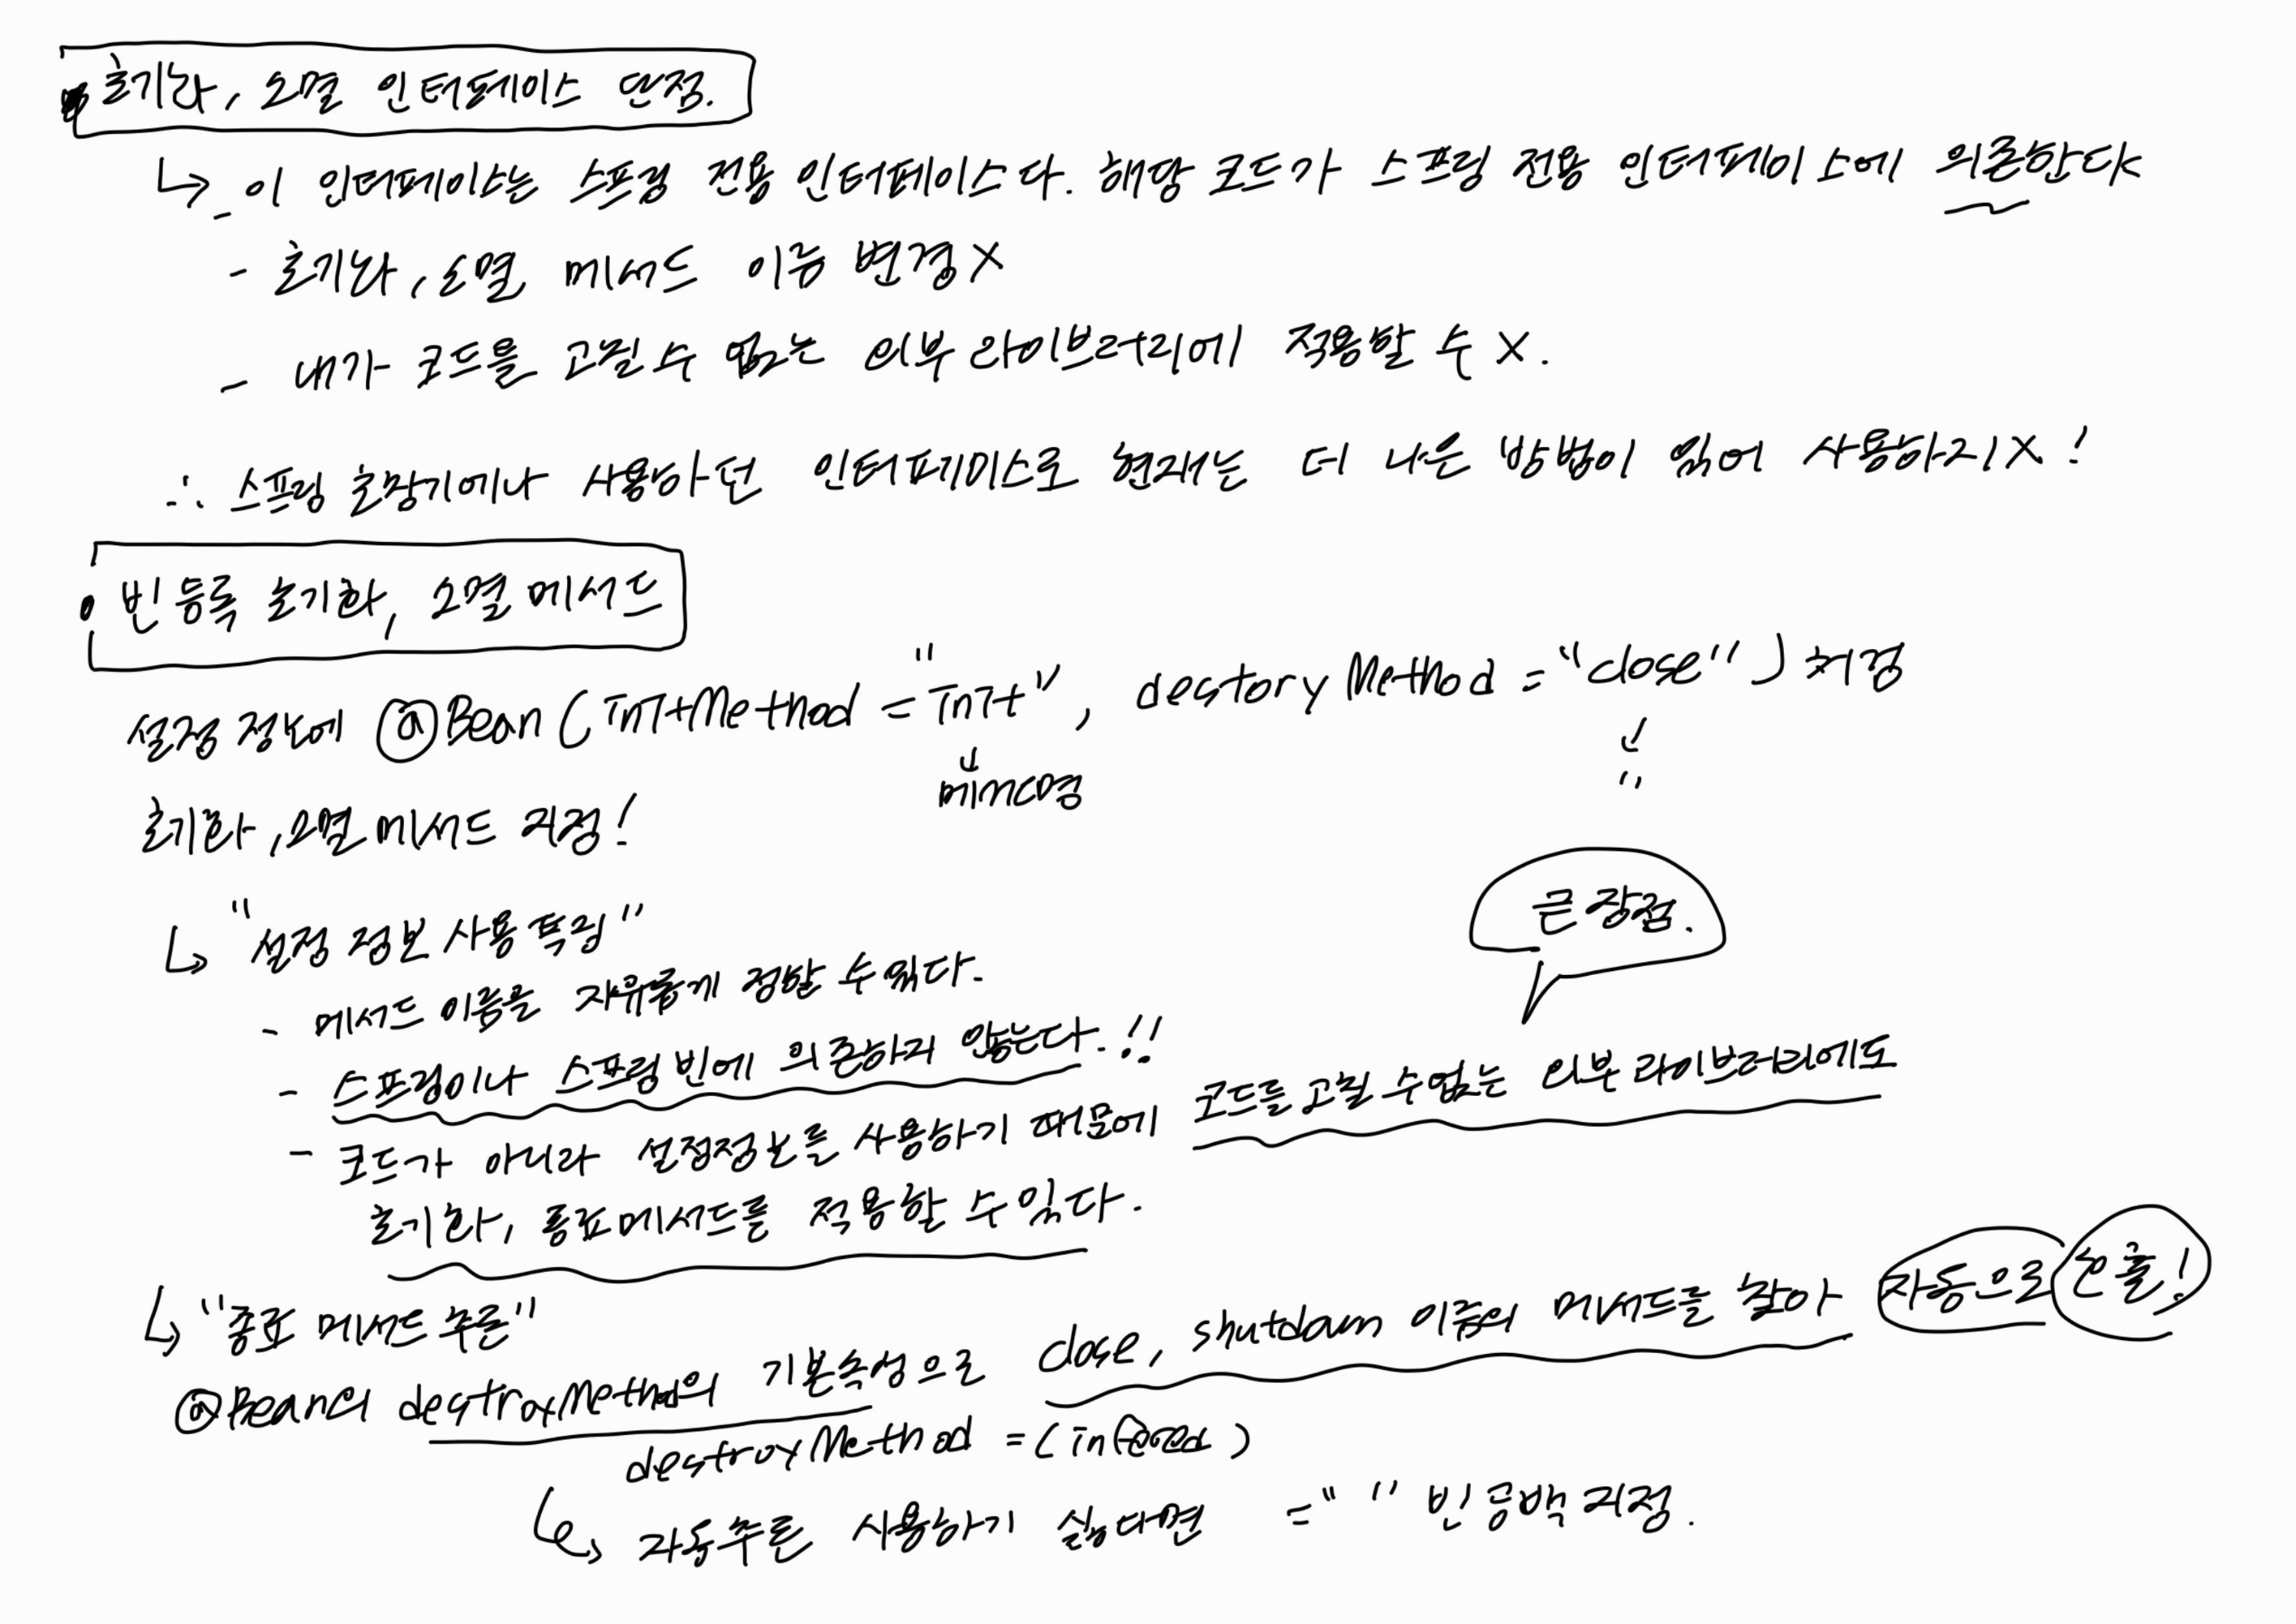 • 초기화, 소멸 인터페이스 단점.
↳ - 이 인터페이스는 스프링 전용 인터페이스다. 해당 코드가 스프링 전용 인터페이스에 의존한다
- 초기화, 소멸 메서드 이름 변경 X
- 내가 코드를 고칠 수 없는 외부 라이브러리에 적용할 수 X.
∴ 스프링 초창기에나 사용하던 인터페이스로 현재는 더 나은 방법이 있어 사용하지 X !
• 빈 등록 초기화, 소멸 메서드
설정 정보에 @Bean (initMethod = "init", destoryMethod = "close") 지정
↓ 메서드명 ↓ "
초기화, 소멸 메서드 지정!
↳ "설정 정보 사용 특징"
큰 장점.
- 메서드 이름을 자유롭게 정할 수 있다.
- 스프링이나 스프링 빈에 의존하지 않는다.!!
- 코드가 아니라 설정정보를 사용하기 때문에 코드를 고칠 수 없는 외부 라이브러리에도
초기화, 종료메서드를 적용할 수 있다.
↳ "종료 메서드 추론"
@Bean의 destroyMethod의 기본속성으로 close, shutdown 이름의 메서드를 찾아 자동으로 호출!
destroyMethod = (inferred)
↳ 자동추론 사용하기 싫다면 = " " 빈 공백 지정.